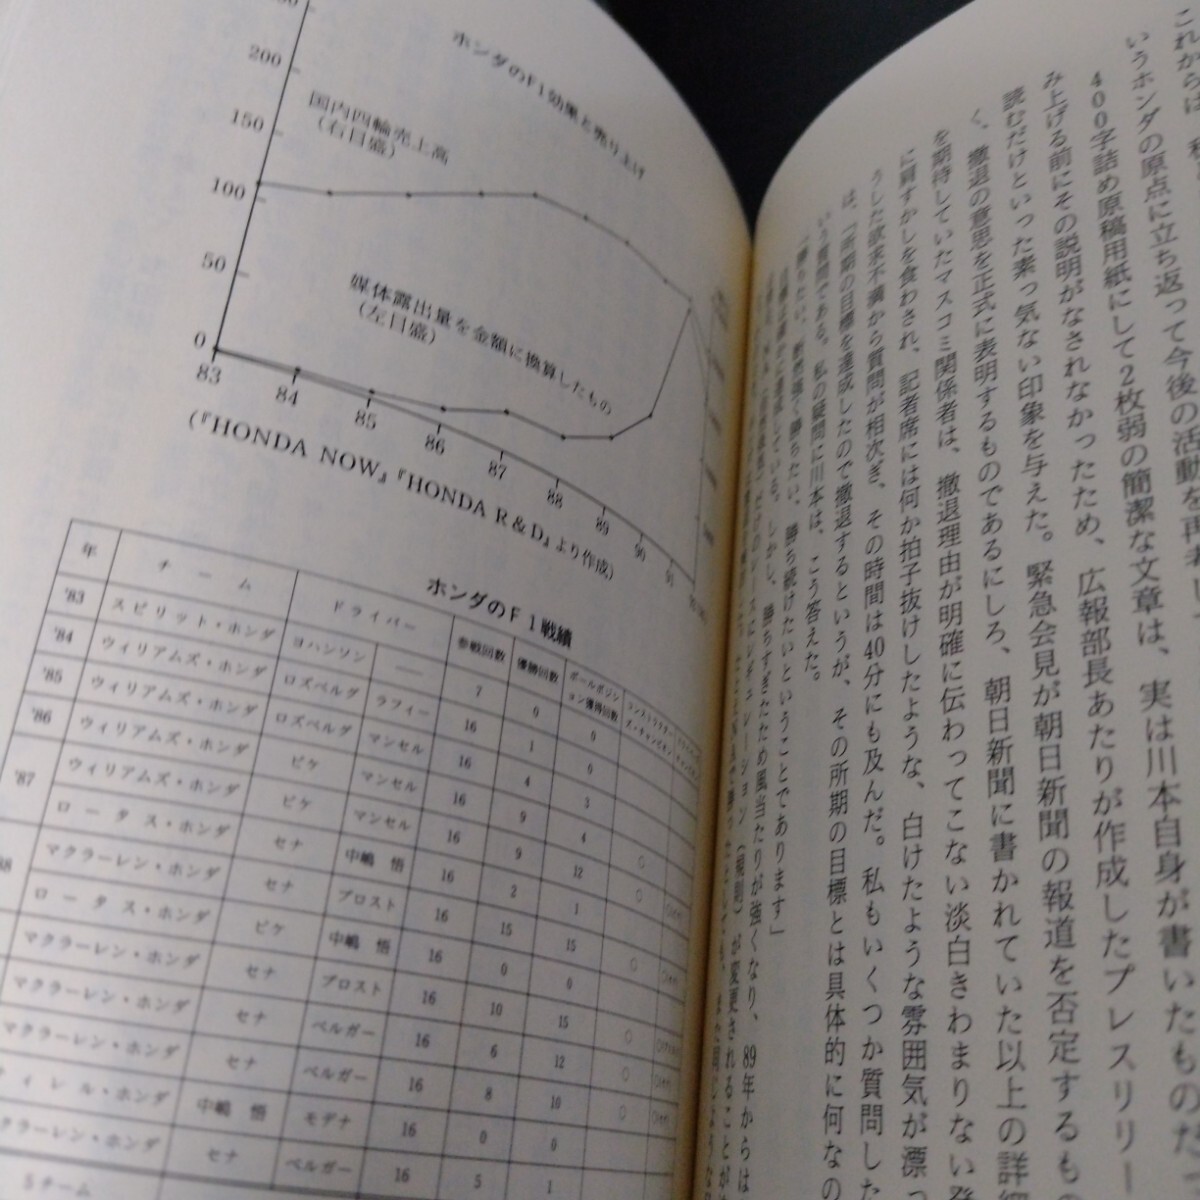 ホンダのF1効果と売り上げ
200
150
100
50
0
国内四輪売上高
(右目盛)
媒体露出量を金額に換算したもの
(左目盛)
83 84 85 86 87 88 89 90 91
(『HONDA NOW』『HONDA R&D』より作成)
ホンダのF1戦績
年 チーム ドライバー 参戦回数 優勝回数 ポールポジション獲得回数
'83 スピリット・ホンダ ヨハンソン —— 7 0 0
'84 ウィリアムズ・ホンダ ロズベルグ ラフィー 16 1 0
'85 ウィリアムズ・ホンダ ロズベルグ マンセル 16 4 3
'86 ウィリアムズ・ホンダ ピケ マンセル 16 9 4 ○
'87 ウィリアムズ・ホンダ ピケ マンセル 16 9 12 ○
ロータス・ホンダ セナ 中嶋 悟 16 2 1
88 マクラーレン・ホンダ セナ プロスト 16 15 15 ○
ロータス・ホンダ ピケ 中嶋 悟 16 0 0
マクラーレン・ホンダ セナ プロスト 16 10 15 ○
マクラーレン・ホンダ セナ ベルガー 16 6 12 ○
マクラーレン・ホンダ セナ ベルガー 16 8 10 ○
ィレル・ホンダ 中嶋 悟 モデナ 16 0 0
クラーレン・ホンダ セナ ベルガー 16 5 1
5チーム
これからは、
いうホンダの原点に立ち返って今後の活動を再
400字詰め原稿用紙にして2枚弱の簡潔な文章は、実は川本自身が書いたものだっ
み上げる前にその説明がなされなかったため、広報部長あたりが作成したプレスリリー
読むだけといった素っ気ない印象を与えた。緊急会見が朝日新聞の報道を否定するも
く、撤退の意思を正式に表明するものであるにしろ、朝日新聞に書かれていた以上の詳細
を期待していたマスコミ関係者は、撤退理由が明確に伝わってこない淡白きわまりない発
に肩すかしを食わされ、記者席には何か拍子抜けしたような、白けたような雰囲気が漂っ
うした欲求不満から質問が相次ぎ、その時間は40分にも及んだ。私もいくつか質問した
は、「所期の目標を達成したので撤退するというが、その所期の目標とは具体的に何なの
いう質問である。私の疑問に川本は、こう答えた。
「勝ちたい、断然強く勝ちたい、勝ち続けたいということであります」